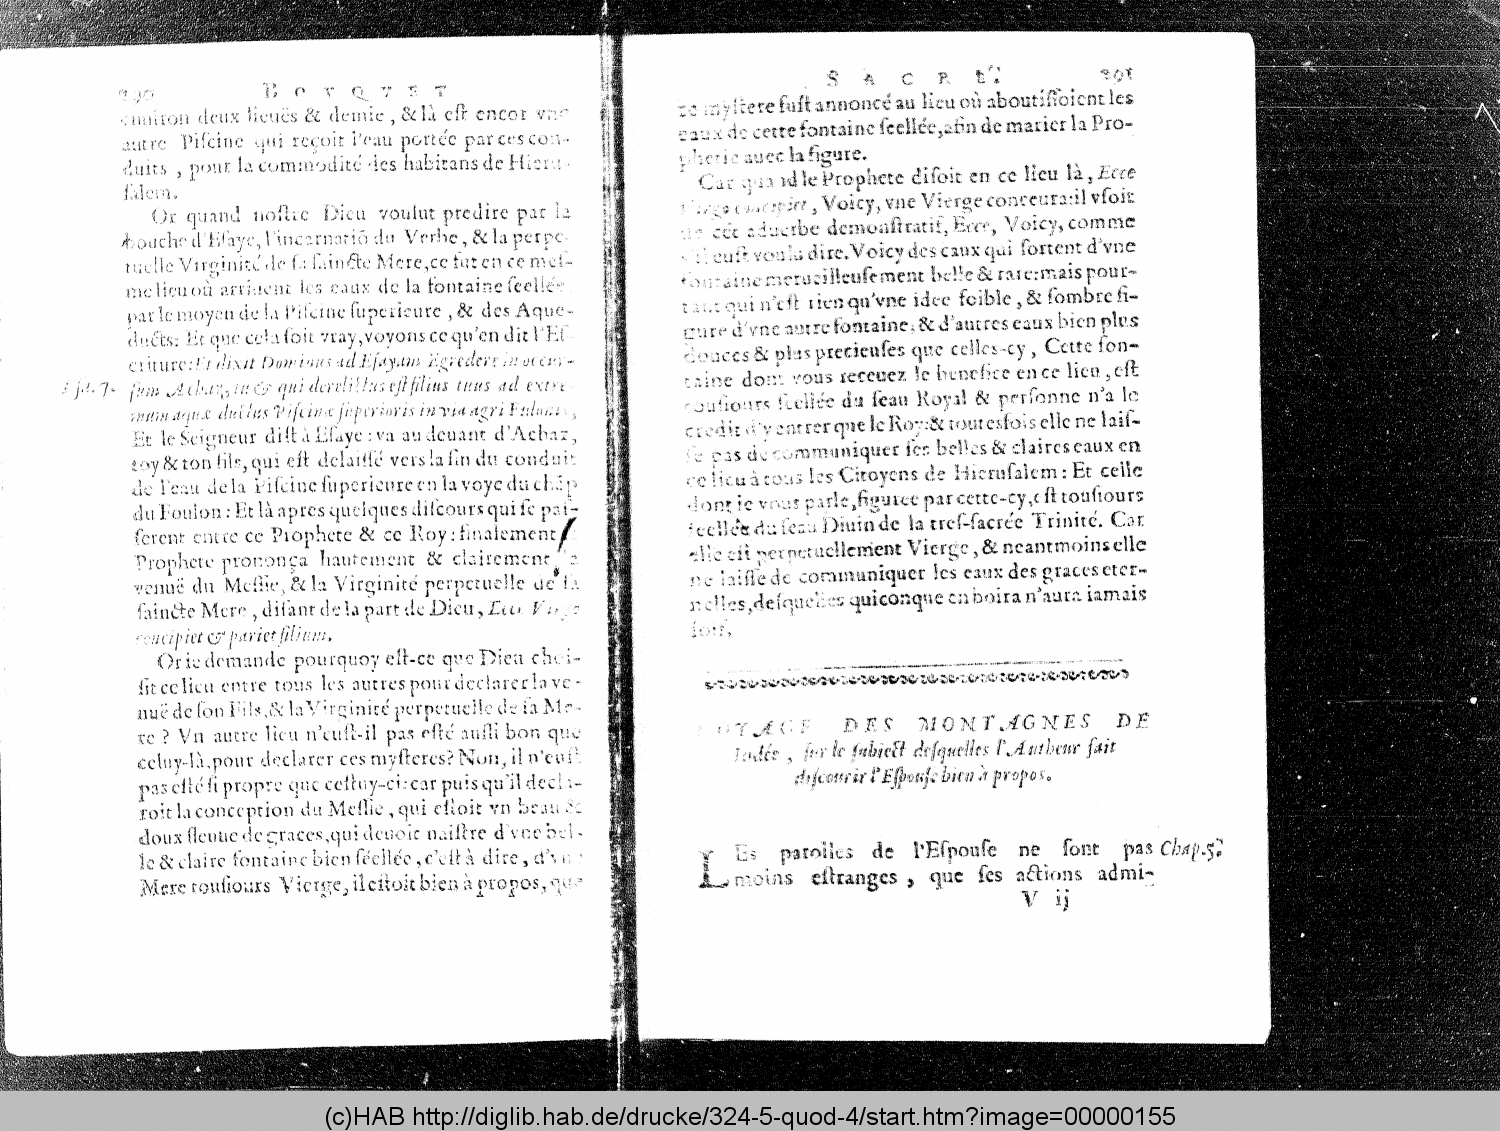 290 BOVQVET
enuiron deux lieuës & demie, & là est encor vne
autre Piscine qui reçoit l'eau portée par ces con-
duits, pour la commodité des habitans de Hieru-
salem.
Or quand nostre Dieu voulut predire par la
bouche d'Esaye, l'incarnatiõ du Verbe, & la perpe-
tuelle Virginité de sa saincte Mere, ce fut en ce mes-
me lieu où arriuent les eaux de la fontaine seellée
par le moyen de la Piscine superieure, & des Aque-
ducts: Et que cela soit vray, voyons ce qu'en dit l'Es
criture: Et dixit Dominus ad Esayam Egredere in occur-
sum Achaz, tu & qui derelictus est filius tuus ad extre
mum aquæ ductus Piscinæ superioris in via agri Fulonis,
Et le Seigneur dist à Esaye: va au deuant d'Achaz,
toy & ton fils, qui est delaissé vers la fin du conduit
de l'eau de la Piscine superieure en la voye du chãp
du Foulon: Et là apres quelques discours qui se pas-
serent entre ce Prophete & ce Roy: finalement
Prophete prononça hautement & clairement la
venuë du Messie, & la Virginité perpetuelle de sa
saincte Mere, disant de la part de Dieu, Ecce Virgo
concipiet & pariet filium.
Or ie demande pourquoy est-ce que Dieu choi-
sit ce lieu entre tous les autres pour declarer la ve-
nuë de son Fils, & la Virginité perpetuelle de sa Me-
re? Vn autre lieu n'eust-il pas esté aussi bon que
celuy-là, pour declarer ces mysteres? Non, il n'eust
pas esté si propre que cestuy-ci: car puis qu'il decla-
roit la conception du Messie, qui estoit vn beau &
doux fleuue de graces, qui deuoit naistre d'vne bel-
le & claire fontaine bien séellée, c'est à dire, d'vne
Mere tousiours Vierge, il estoit bien à propos, que
SACRÉ. 291
ce mystere fust annoncé au lieu où aboutissoient les
eaux de cette fontaine seellée, afin de marier la Pro-
phetie auec la figure.
Car quand le Prophete disoit en ce lieu là, Ecce
Virgo concipiet, Voicy, vne Vierge conceura: il vsoit
de cét aduerbe demonstratif, Ecce, Voicy, comme
s'il eust voulu dire. Voicy des eaux qui sortent d'vne
fontaine merueilleusement belle & rare: mais pour-
tant qui n'est rien qu'vne idee foible, & sombre fi-
gure d'vne autre fontaine, & d'autres eaux bien plus
douces & plus precieuses que celles-cy, Cette fon-
taine dont vous receuez le benefice en ce lieu, est
tousiours seellée du seau Royal & personne n'a le
credit d'y entrer que le Roy: & toutesfois elle ne lais-
se pas de communiquer ses belles & claires eaux en
ce lieu à tous les Citoyens de Hierusalem: Et celle
dont ie vous parle, figuree par cette-cy, est tousiours
seellée du seau Diuin de la tres-sacrée Trinité. Car
elle est perpetuellement Vierge, & neantmoins elle
ne laisse de communiquer les eaux des graces eter-
nelles, desquelles quiconque en boira n'aura iamais
soif.
VOYAGE DES MONTAGNES DE
Iudée, sur le subiect desquelles l'Autheur fait
discourir l'Espouse bien à propos.
LEs parolles de l'Espouse ne sont pas Chap. 5.
moins estranges, que ses actions admi-
V ij
(c)HAB http://diglib.hab.de/drucke/324-5-quod-4/start.htm?image=00000155